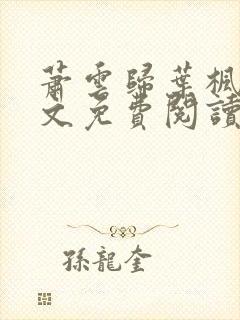 蕭雲歸葉楓
文免費閱讀
孫龍奎